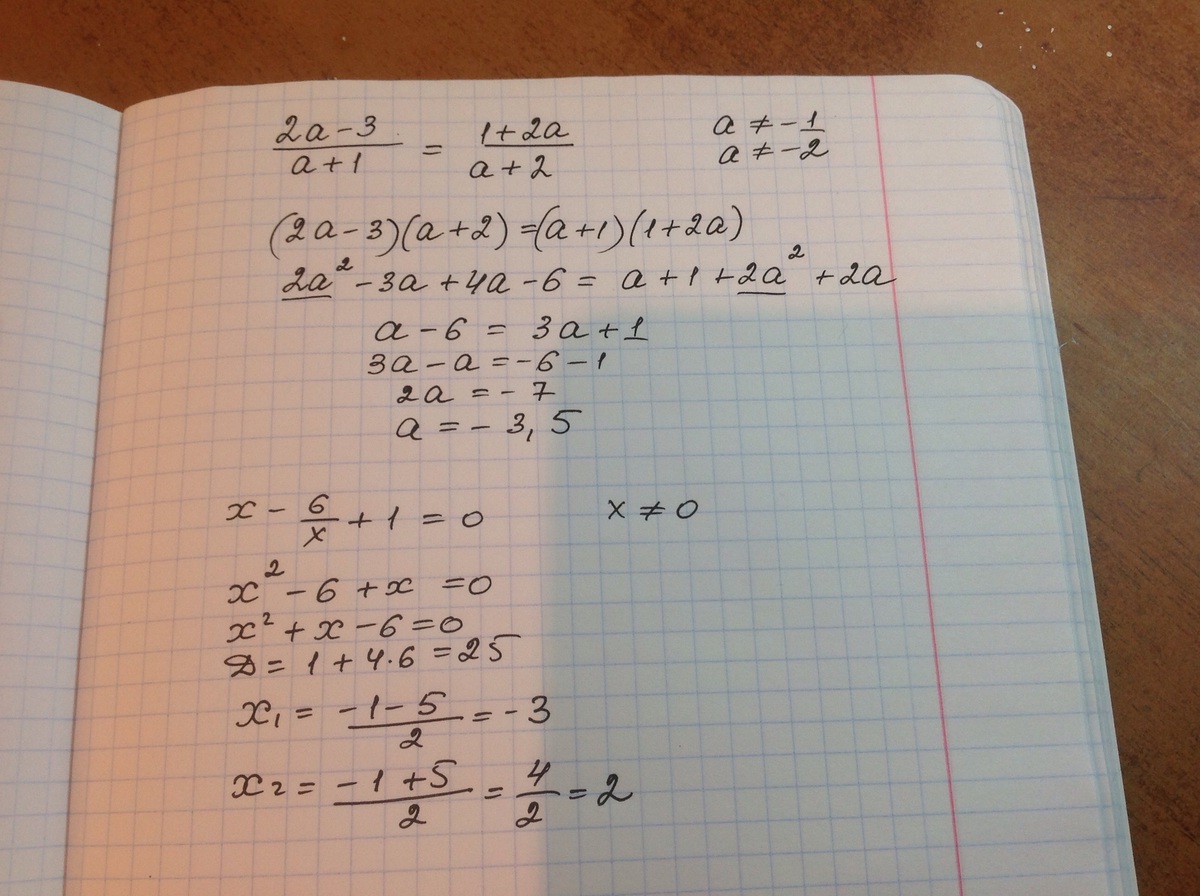 (2a-3)/(a+1) = (1+2a)/(a+2) a ≠ -1
a ≠ -2
(2a-3)(a+2)=(a+1)(1+2a)
2a²-3a+4a-6= a+1+2a²+2a
a-6 = 3a+1
3a-a=-6-1
2a=-7
a=-3,5
x - 6/x + 1 = 0 x ≠ 0
x²-6+x=0
x²+x-6=0
D=1+4·6=25
x₁ = (-1-5)/2 = -3
x₂ = (-1+5)/2 = 4/2 = 2